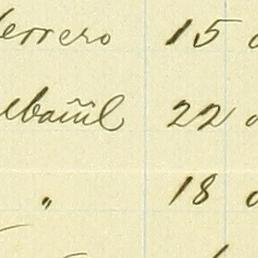 errero 15
lbañil 22
" 18